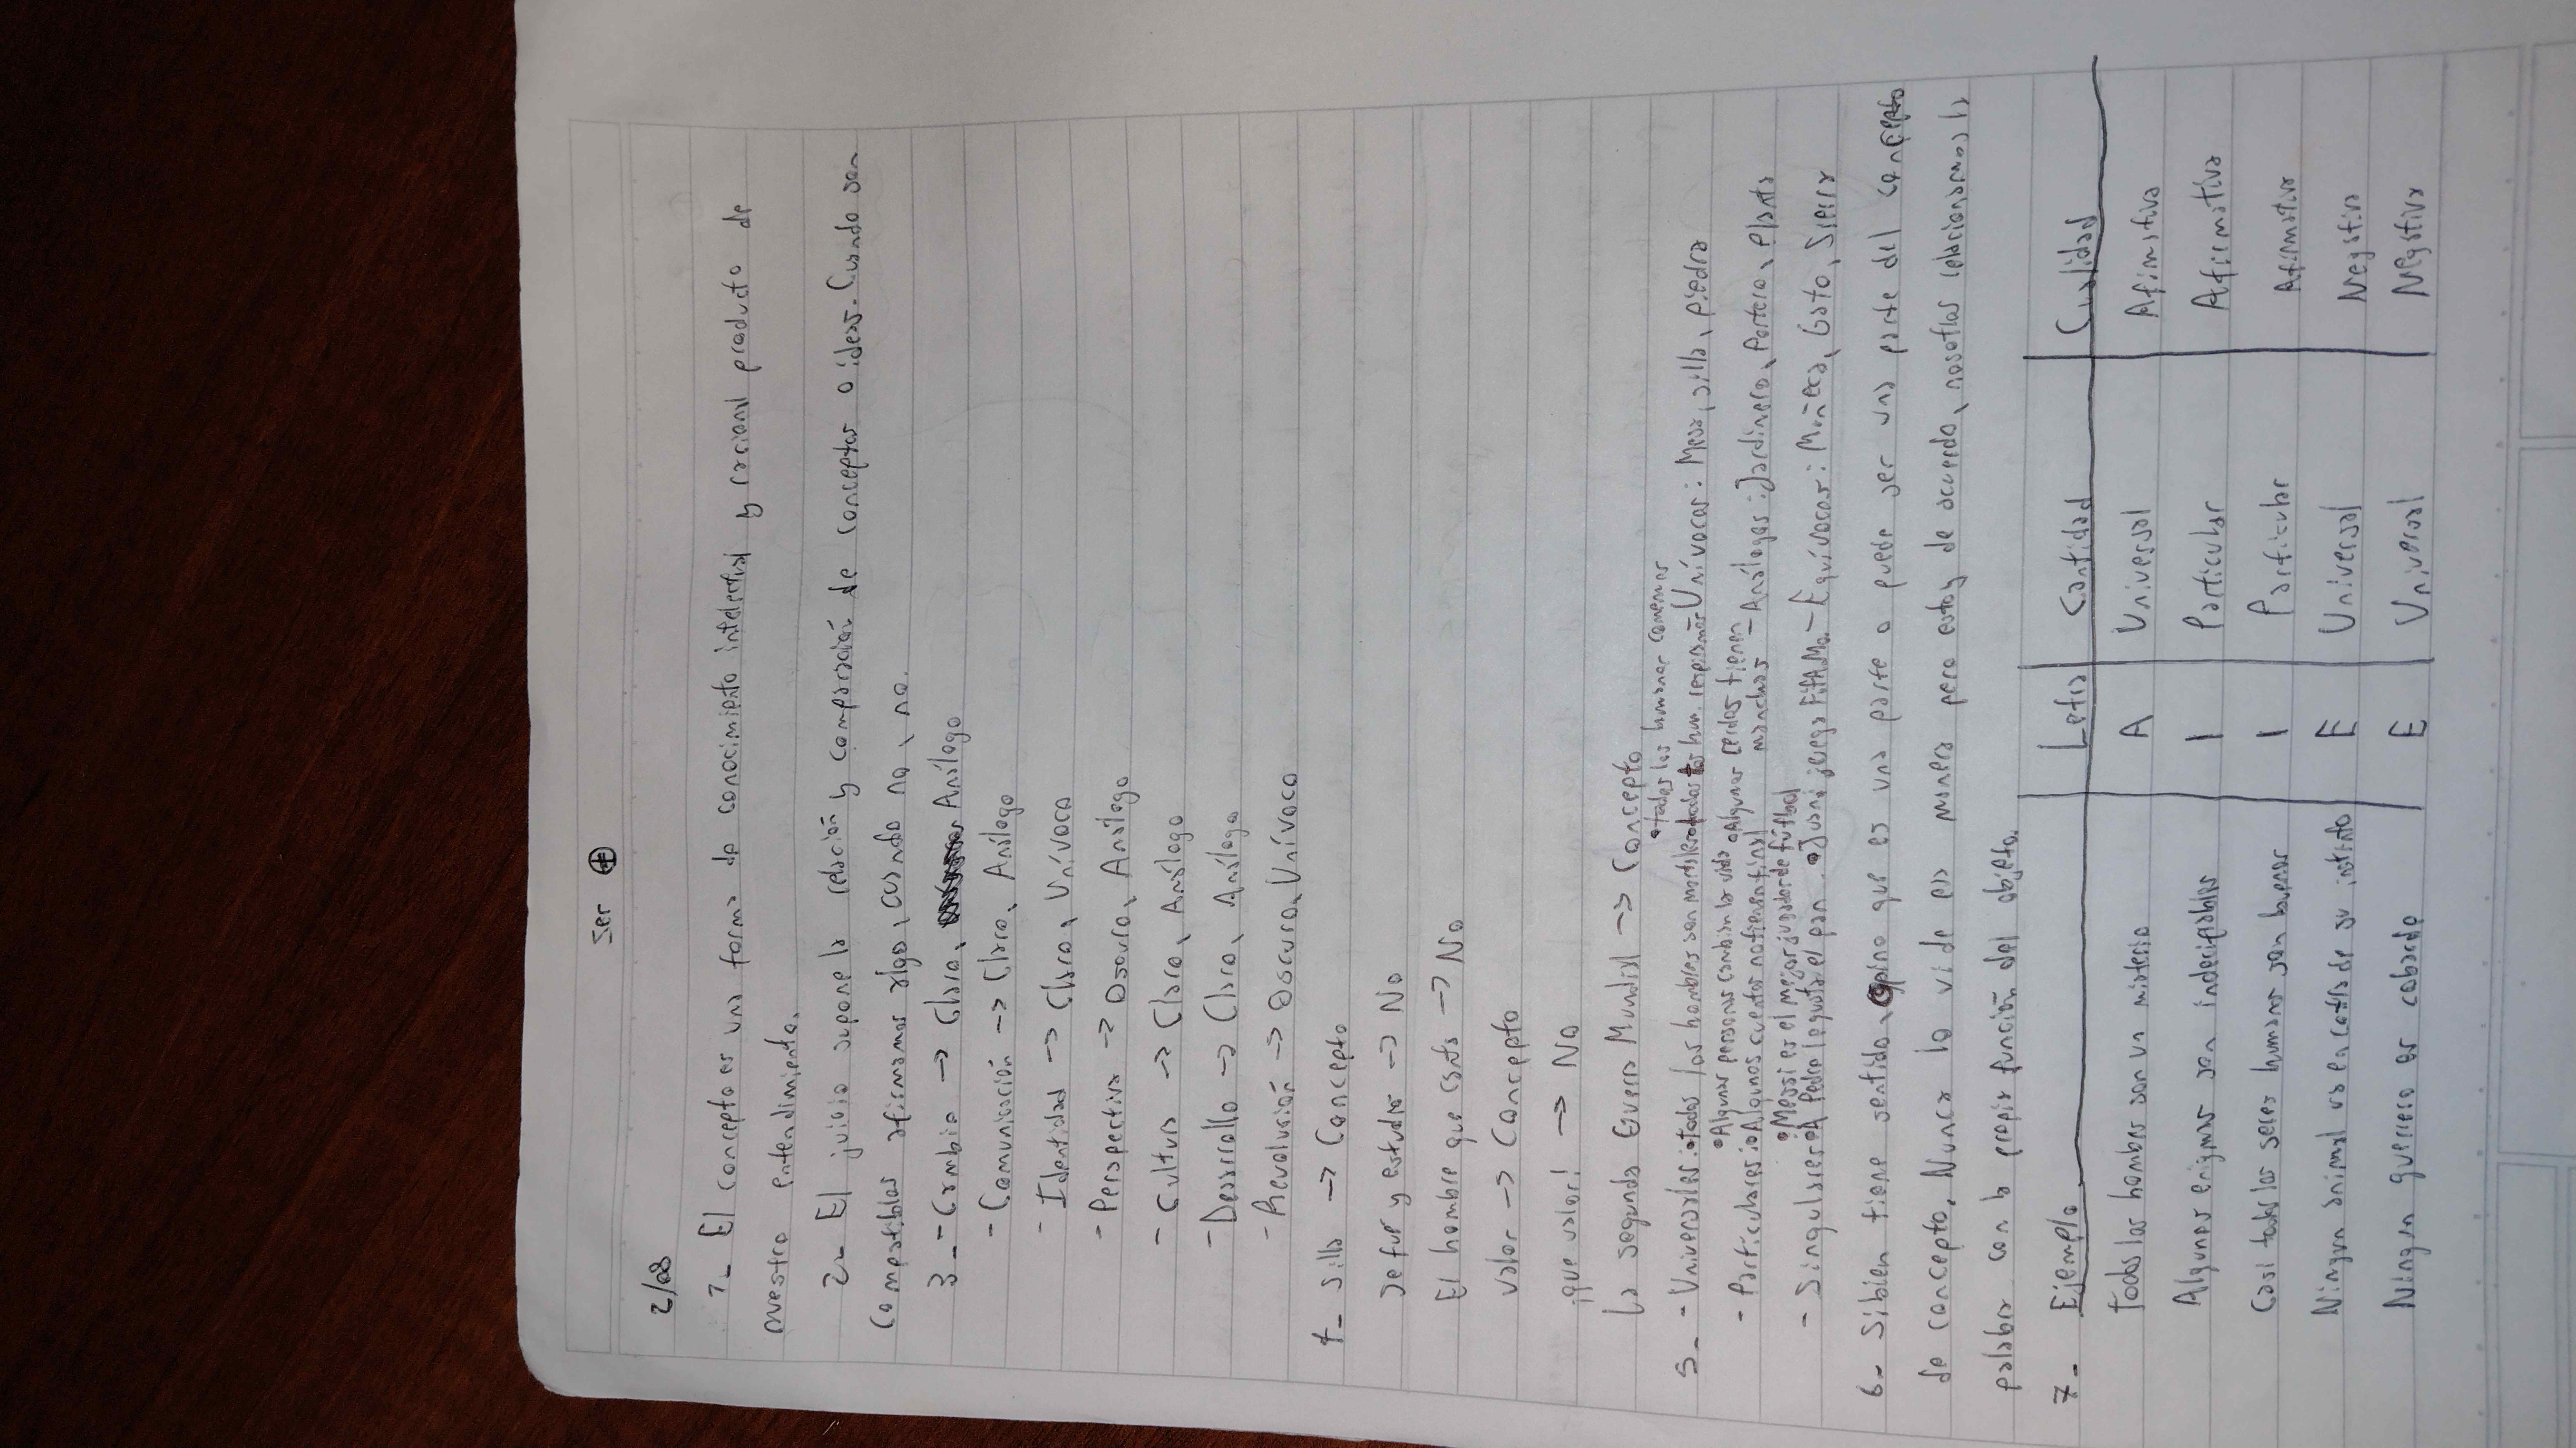 Ser +
2/08
1- El concepto es una forma de conocimiento intelectual y racional producto de
nuestro entendimiento.
2- El juicio supone la relación y comparación de conceptos o ideas. Cuando son
compatibles afirmamos algo, cuando no, no.
3- - Cambio -> Claro, Análogo
- Comunicación -> Claro, Análogo
- Identidad -> Claro, Unívoco
- Perspectiva -> Oscuro, Análogo
- Cultura -> Claro, Análogo
- Desarrollo -> Claro, Análogo
- Revolución -> Oscuro, Unívoco
4- Silla -> Concepto
Se fue y estudia -> No
El hombre que canta -> No
Valor -> Concepto
¡que valor! -> No
La segunda Guerra Mundial -> Concepto
•todos los humanos comemos
5- - Universales: •todos los hombres son mortales •todos los hum. respiran - Unívocas: Mesa, silla, piedra
•Algunas personas cambian la vida •Algunos cerdos tienen manchas
- Particulares: •Algunos cuentos no tienen final - Análogas: Jardinero, Portero, planta
•Messi es el mejor jugador de fútbol
- Singulares: •A Pedro le gusta el pan. •Juani juega - Equívocas: Muñeca, Gato, Sierra
6- Si bien tiene sentido, opino que es una parte o puede ser una parte del concepto
de concepto. Nunca lo vi de esa manera pero estoy de acuerdo, nosotros relacionamos la
palabra con la propia función del objeto.
7- Ejemplo | Letra | Cantidad | Cualidad
Todos los hombres son un misterio | A | Universal | Afimativa
Algunos enigmas son indecifrables | I | Particular | Afirmativa
Casi todos los seres humanos son buenos | I | Particular | Afirmativa
Ningun animal va en contra de su instinto | E | Universal | Negativa
Ningun guerrero es cobarde | E | Universal | Negativa